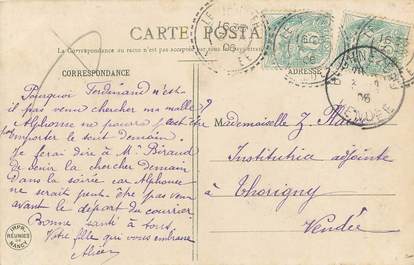 CARTE POSTALE
La Correspondance au recto n'est pas acceptée par
CORRESPONDANCE
ADRESSE
Pourquoi Ferdinand n'est-
il pas venu chercher ma malle?
Alphonse ne pourra peut-être
pas emporter le tout demain.
Je ferai dire à Mr Biraud
de venir la chercher demain
dans la soirée car Alphonse
ne serait peut-être pas venu
avant le départ du courrier
Bonne santé à tous
Votre fille qui vous embrasse
Mademoiselle Z.
Institutrice adjointe
à Thorigny
Vendée
IMPR.
RÉUNIES
DE
NANCY
VENDÉE
06